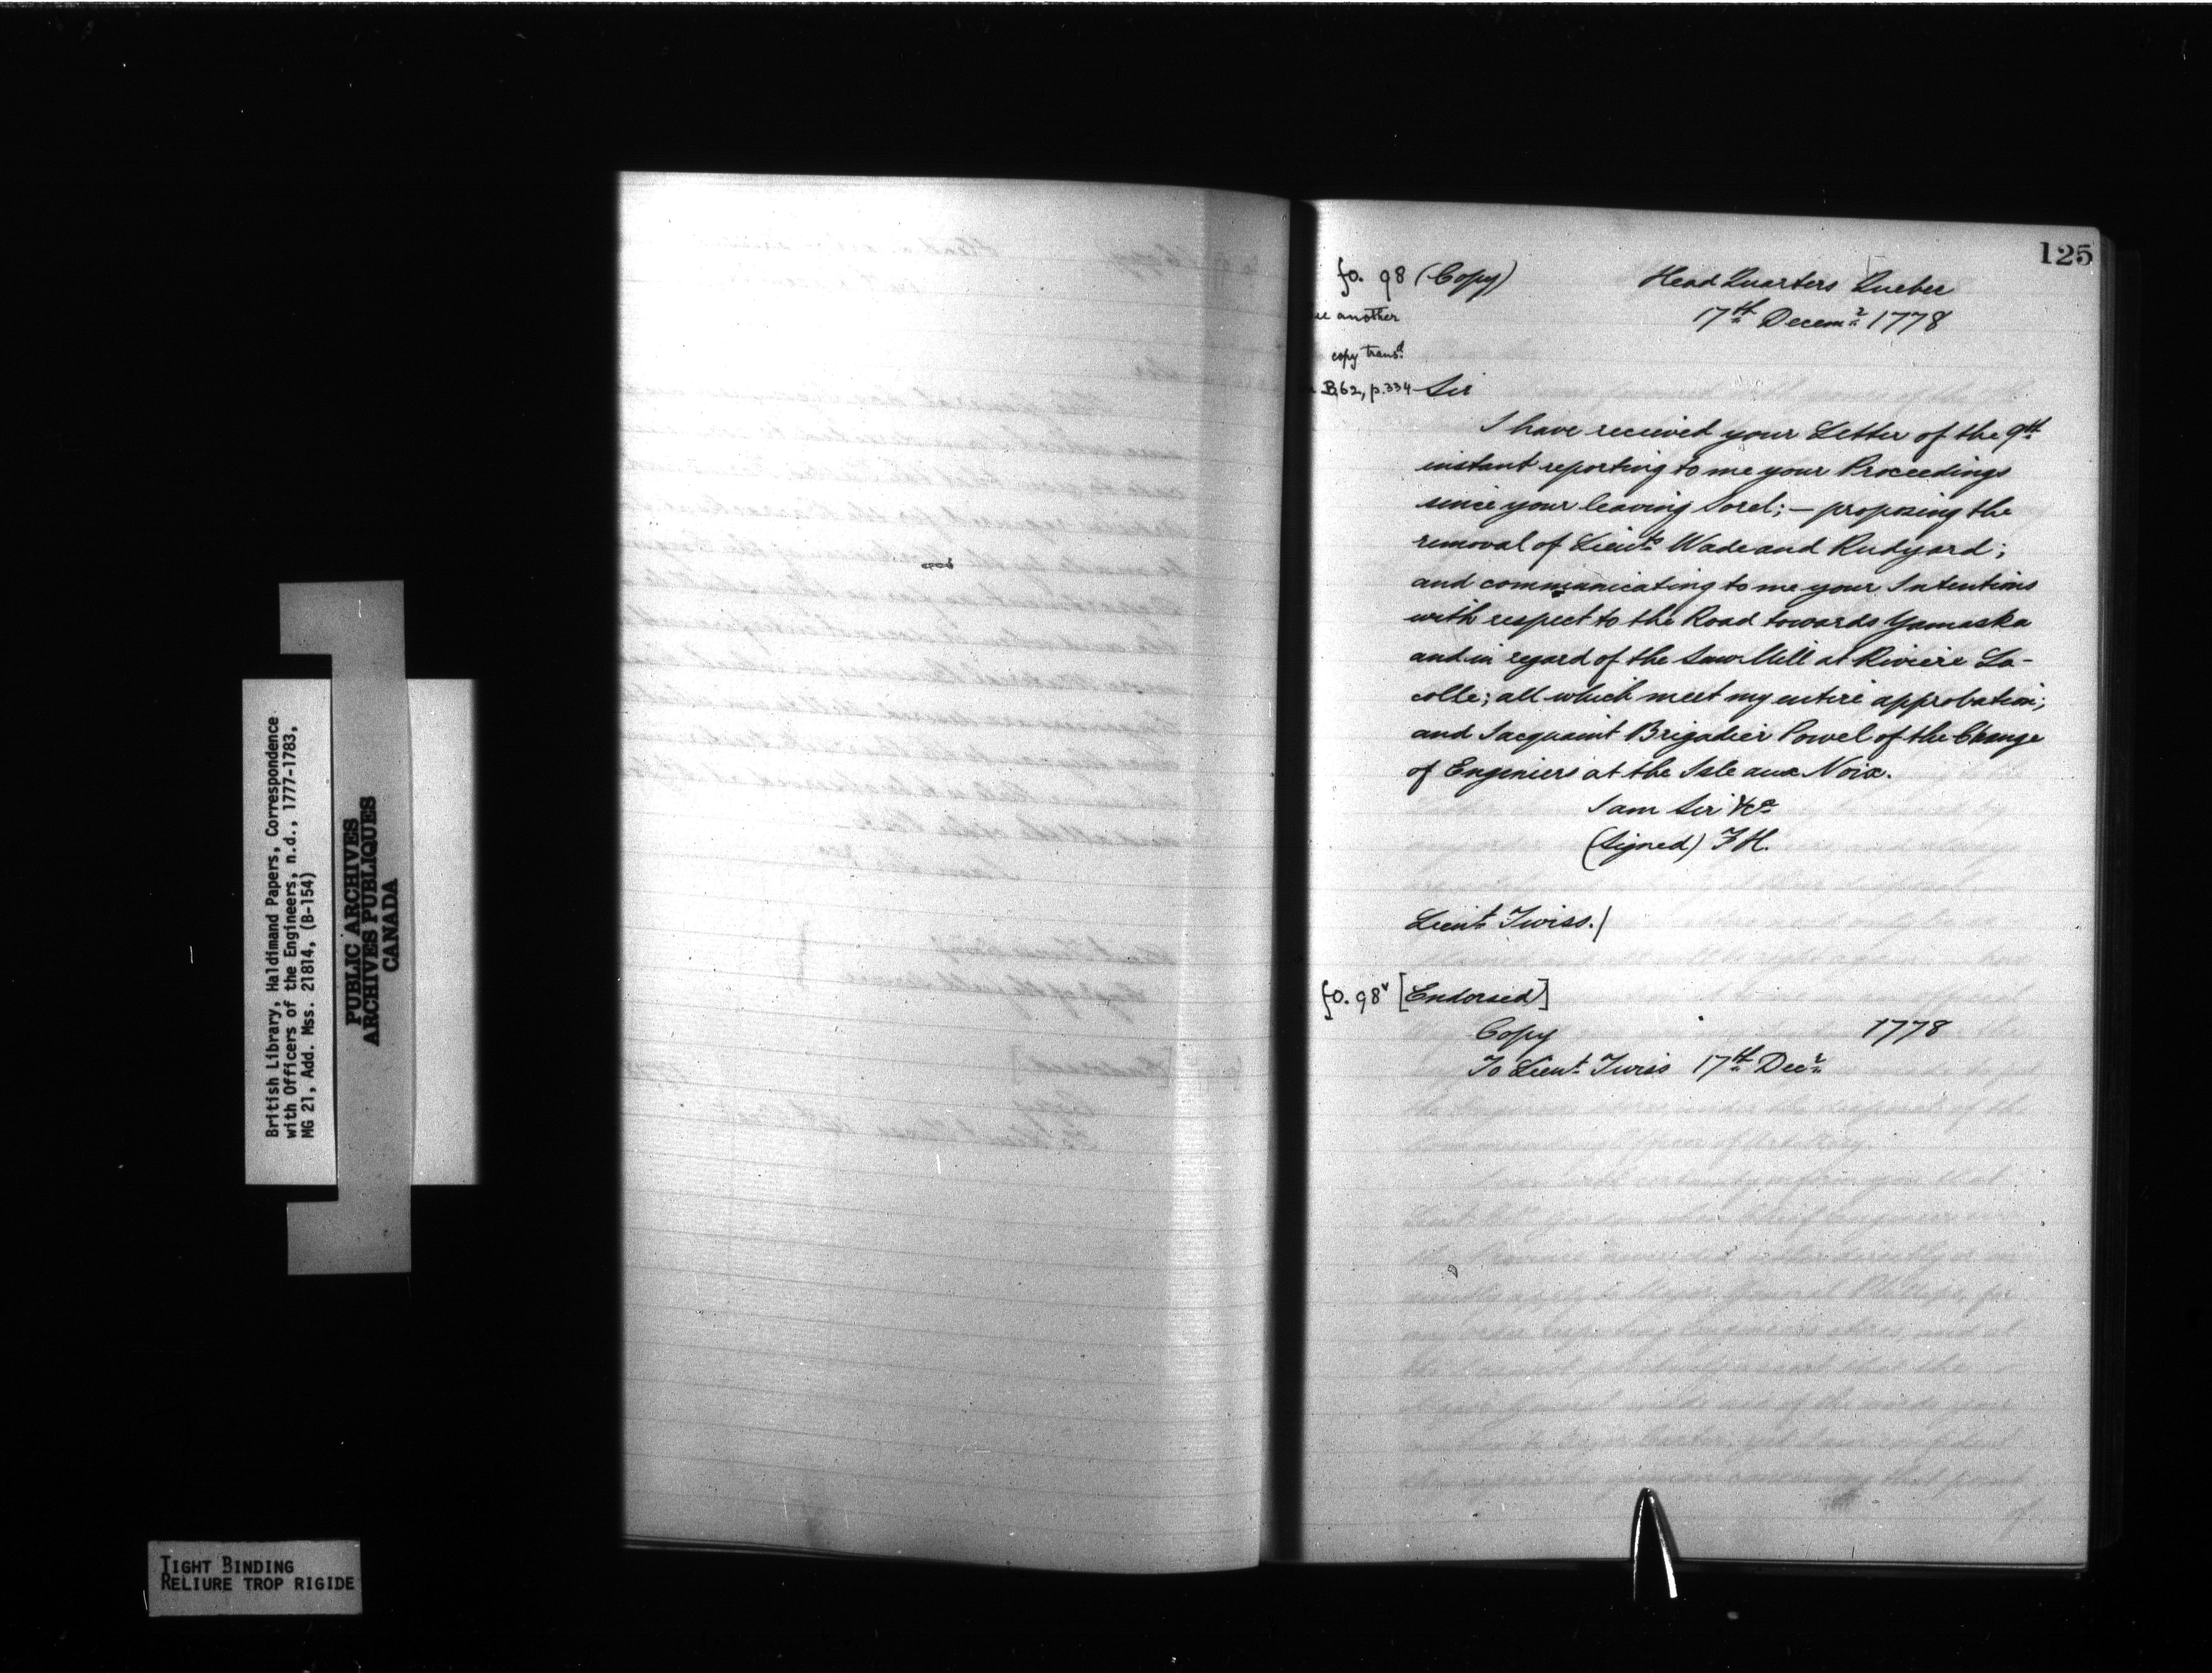 125
fo. 98 (Copy) Head Quarters Quebec
another 17th Decemr 1778
copy transd
B,62, p.334 Sir
I have recieved your Letter of the 9th
instant reporting to me your Proceedings
since your leaving Sorel; — proposing the
removal of Lieuts Wade and Rudyard;
and communicating to me your Intentions
with respect to the Road towards Yamaska
and in regard of the Saw Mill at Riviere La-
colle; all which meet my entire approbation;
and I acquaint Brigadier Powel of the Change
of Enginiers at the Isle aux Noix.
I am Sir &ca
(Signed) F H.
Lieut Twiss./
fo. 98v [Endorsed]
Copy 1778
To Lieut Twiss 17th Decr
British Library, Haldimand Papers, Correspondence
with Officers of the Engineers, n.d., 1777-1783,
MG 21, Add. Mss. 21814, (B-154)
PUBLIC ARCHIVES
ARCHIVES PUBLIQUES
CANADA
TIGHT BINDING
RELIURE TROP RIGIDE